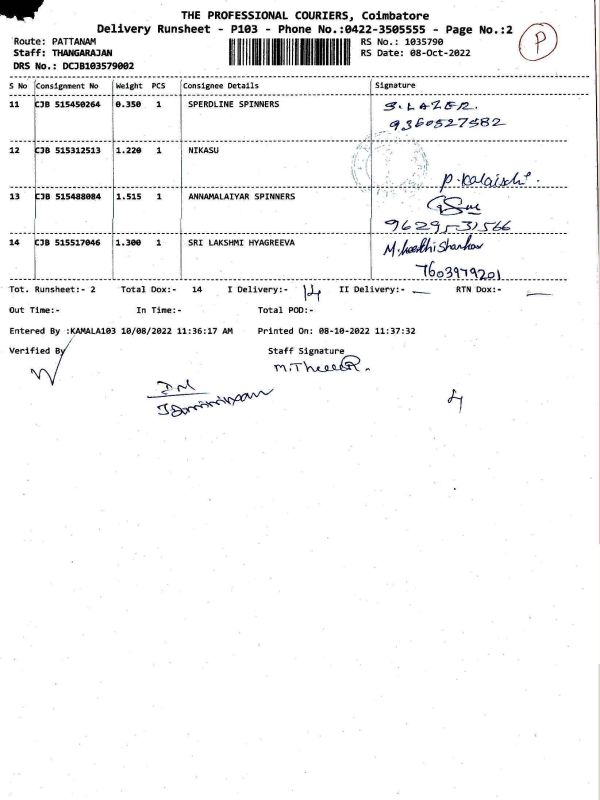 THE PROFESSIONAL COURIERS, Coimbatore
Delivery Runsheet - P103 - Phone No.:0422-3505555 - Page No.:2
P
Route: PATTANAM
RS No.: 1035790
Staff: THANGARAJAN
RS Date: 08-Oct-2022
DRS No.: DCJB103579002
S No Consignment No Weight PCS Consignee Details Signature
11 CJB 515450264 0.350 1 SPERDLINE SPINNERS S.LAZER.
9360527582
12 CJB 515312513 1.220 1 NIKASU
13 CJB 515488084 1.515 1 ANNAMALAIYAR SPINNERS
9629531566
14 CJB 515517046 1.300 1 SRI LAKSHMI HYAGREEVA
7603979201
Tot. Runsheet:- 2 Total Dox:- 14 I Delivery:- 14 II Delivery:- — RTN Dox:- —
Out Time:- In Time:- Total POD:-
Entered By :KAMALA103 10/08/2022 11:36:17 AM Printed On: 08-10-2022 11:37:32
Verified By Staff Signature